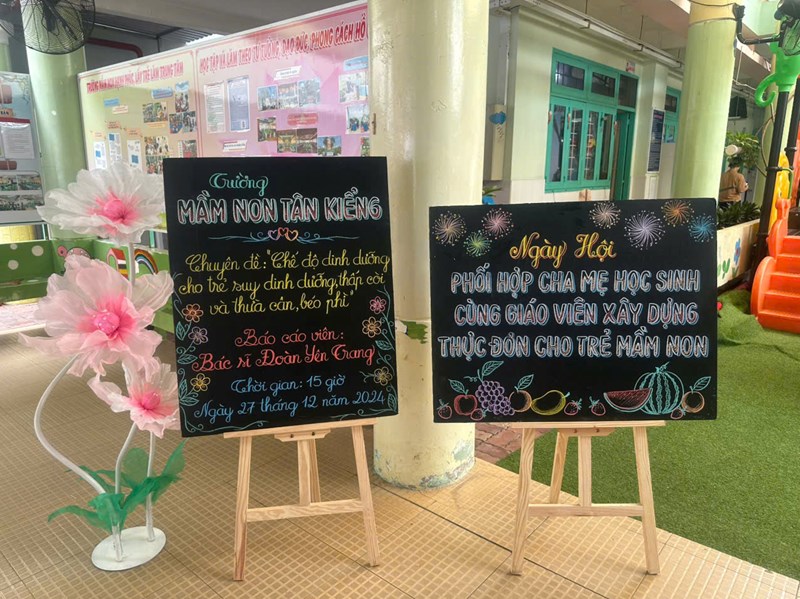 HỌC TẬP VÀ LÀM THEO TƯ TƯỞNG, ĐẠO ĐỨC, PHONG CÁCH HỒ
Trường
MẦM NON TÂN KIỂNG
Chuyên đề: "Chế độ dinh dưỡng
cho trẻ suy dinh dưỡng, thấp còi
và thừa cân, béo phì"
Báo cáo viên:
Bác sĩ Đoàn Yên Trang
Thời gian: 15 giờ
Ngày 27 tháng 12 năm 2024
Ngày Hội
PHỐI HỢP CHA MẸ HỌC SINH
CÙNG GIÁO VIÊN XÂY DỰNG
THỰC ĐƠN CHO TRẺ MẦM NON